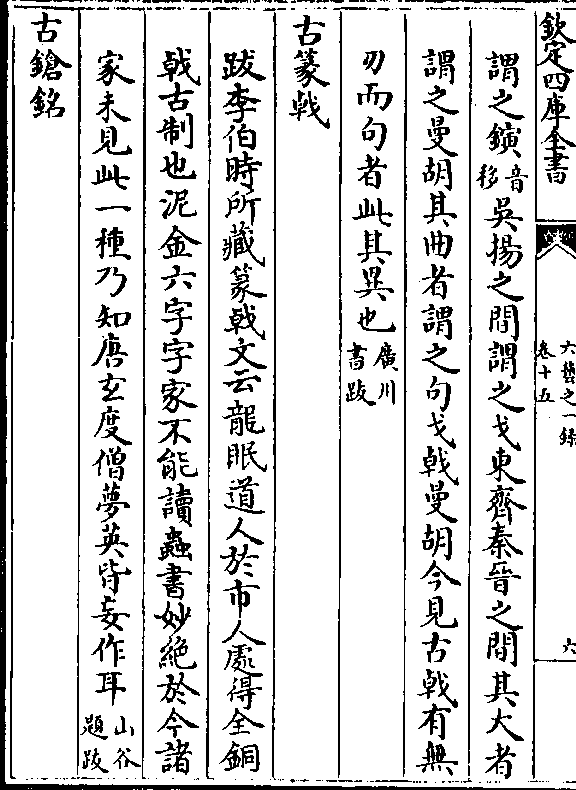 欽定四庫全書
六藝之一錄
卷十五
六
謂之鏔音移吳揚之間謂之戈東齊秦晉之間其大者
謂之曼胡其曲者謂之句戈戟曼胡今見古戟有無
刃而句者此其異也廣川書跋
古篆戟
跋李伯時所藏篆戟文云龍眠道人於市人處得全銅
戟古制也泥金六字字家不能讀蟲書妙絶於今諸
家未見此一種乃知唐玄度僧夢英皆妄作耳山谷題跋
古鎗銘